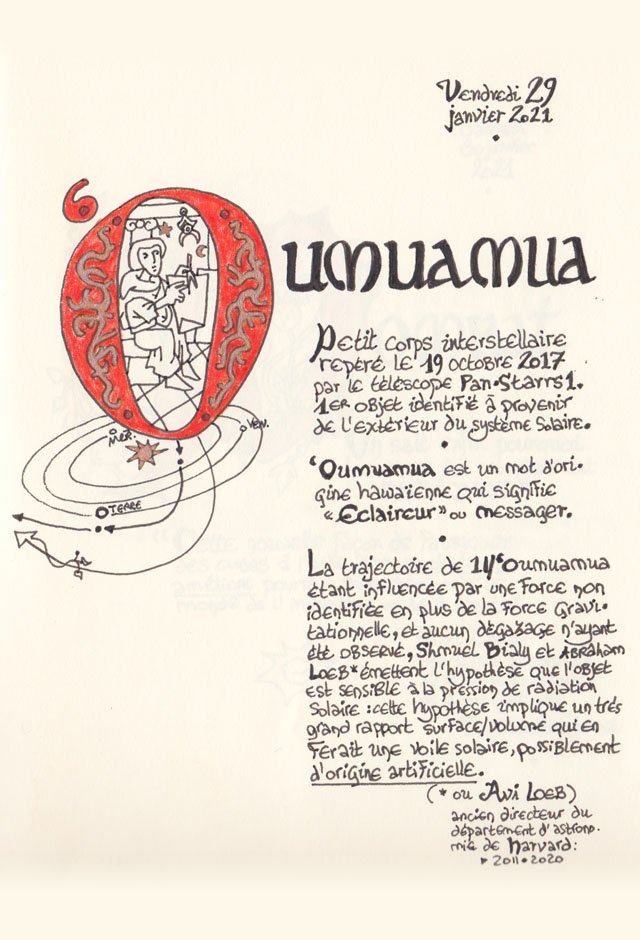 Vendredi 29
janvier 2021
•
'Oumuamua
Petit corps interstellaire
repéré le 19 octobre 2017
par le télèscope Pan•Starrs 1.
1er objet identifié à provenir
de l'extérieur du système solaire.
•
'Oumuamua est un mot d'ori-
gine hawaïenne qui signifie
« Eclaireur » ou messager.
•
La trajectoire de 1I/'Oumuamua
étant influencée par une force non
identifiée en plus de la force gravi-
tationnelle, et aucun dégazage n'ayant
été observé, Shmuel Bialy et Abraham
Loeb* émettent l'hypothèse que l'objet
est sensible à la pression de radiation
solaire : cette hypothèse implique un très
grand rapport surface/volume qui en
ferait une voile solaire, possiblement
d'origine artificielle.
(* ou Avi Loeb)
ancien directeur du
département d'astrono-
mie de Harvard :
▸ 2011•2020
Mer.
Ven.
Terre